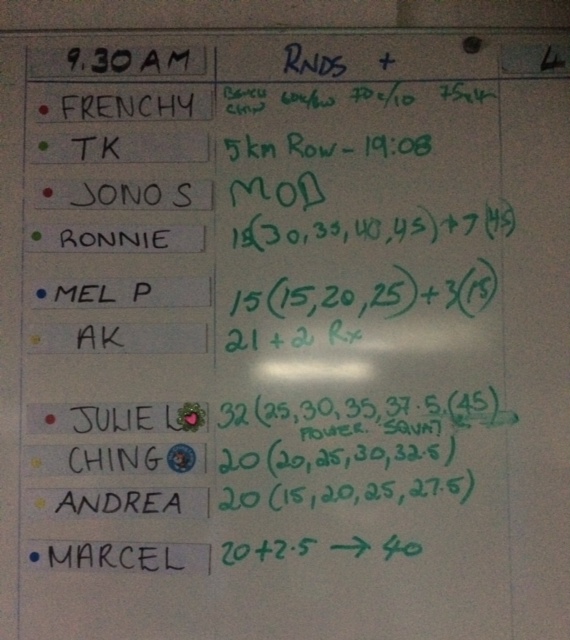 9.30 AM RNDS +
FRENCHY BENCH 70c/10
CHIN
TK 5km Row - 19:08
JONO S MOD
RONNIE (30, 35, 40, 45) + 7 (45)
MEL P 15 (15, 20, 25) + 3 (15)
AK 21 + 2 Rx
JULIE L 32 (25, 30, 35, 37.5, (45)
POWER SQUAT
CHING 20 (20, 25, 30, 32.5)
ANDREA 20 (15, 20, 25, 27.5)
MARCEL 20+2.5 → 40